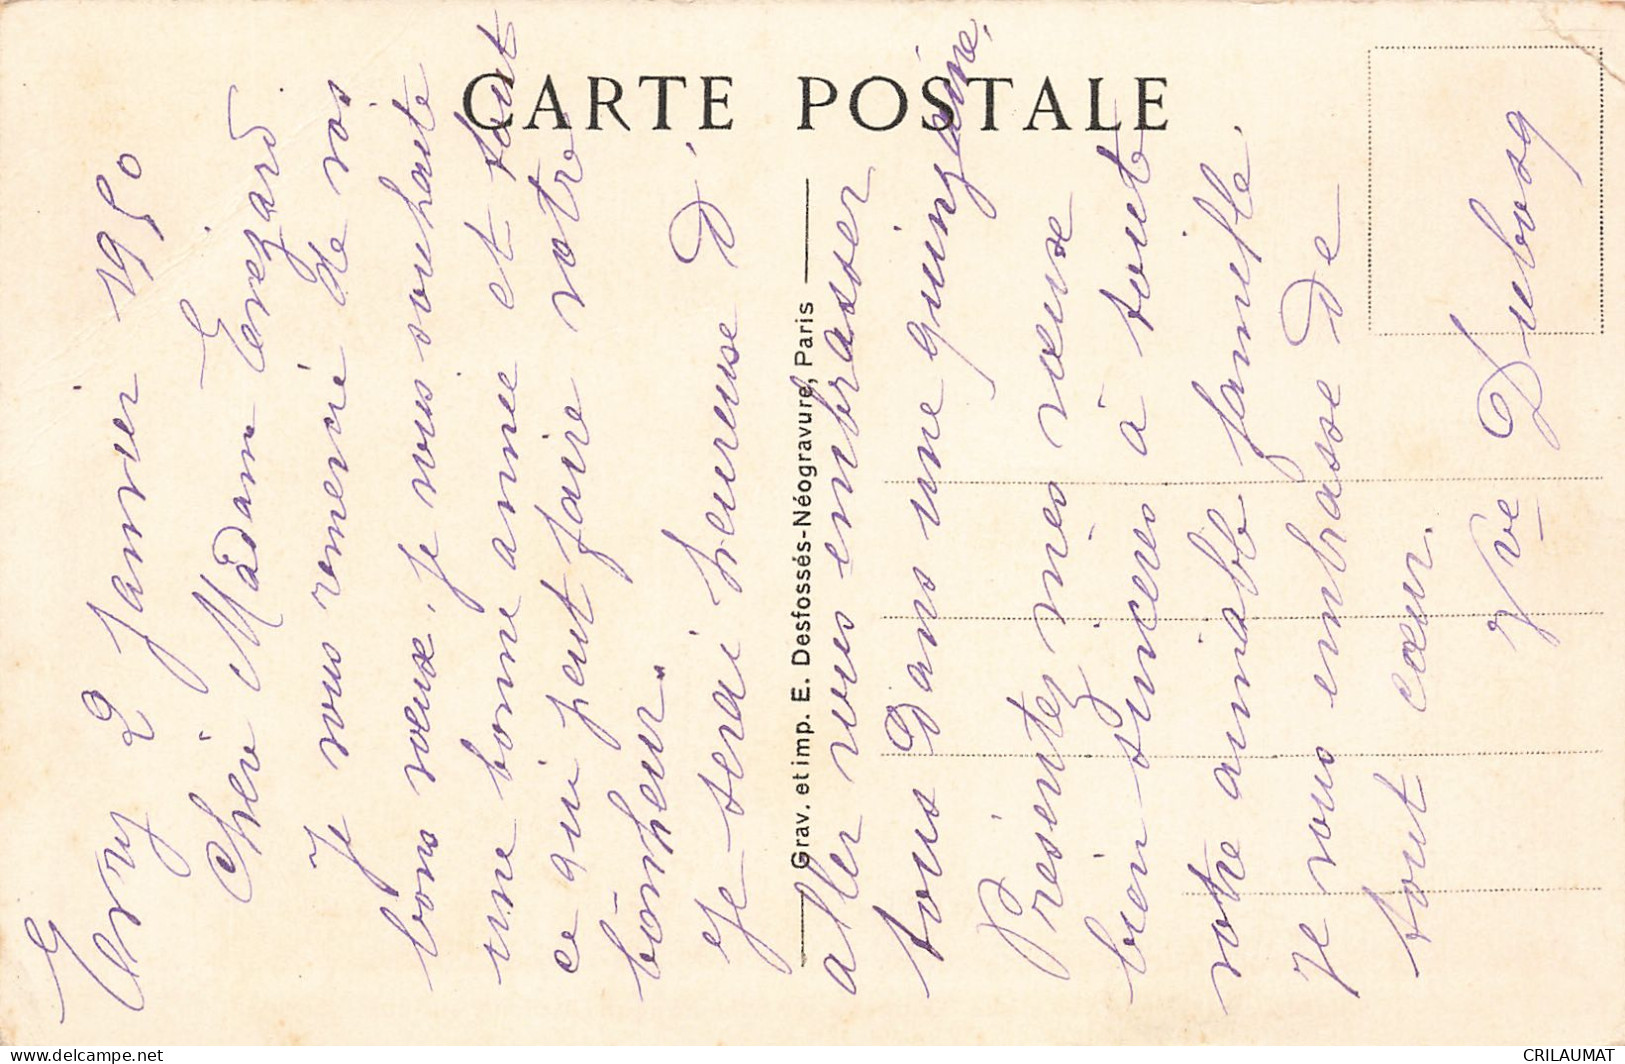 CARTE POSTALE
2 Janvier 1950
Chère Madam
Je vous remercie de vos
bons voeux. Je vous souhaite
une bonne année et tout
ce qui peut faire votre
bonheur.
Je serai heureuse d'
aller vous embrasser
tous dans une quinzaine.
Présentez mes voeux
bien sincères à toute
votre aimable famille.
Je vous embrasse de
tout cœur.
Vve Dubosq
Grav. et imp. E. Desfossés-Néogravure, Paris
delcampe.net
CRILAUMAT